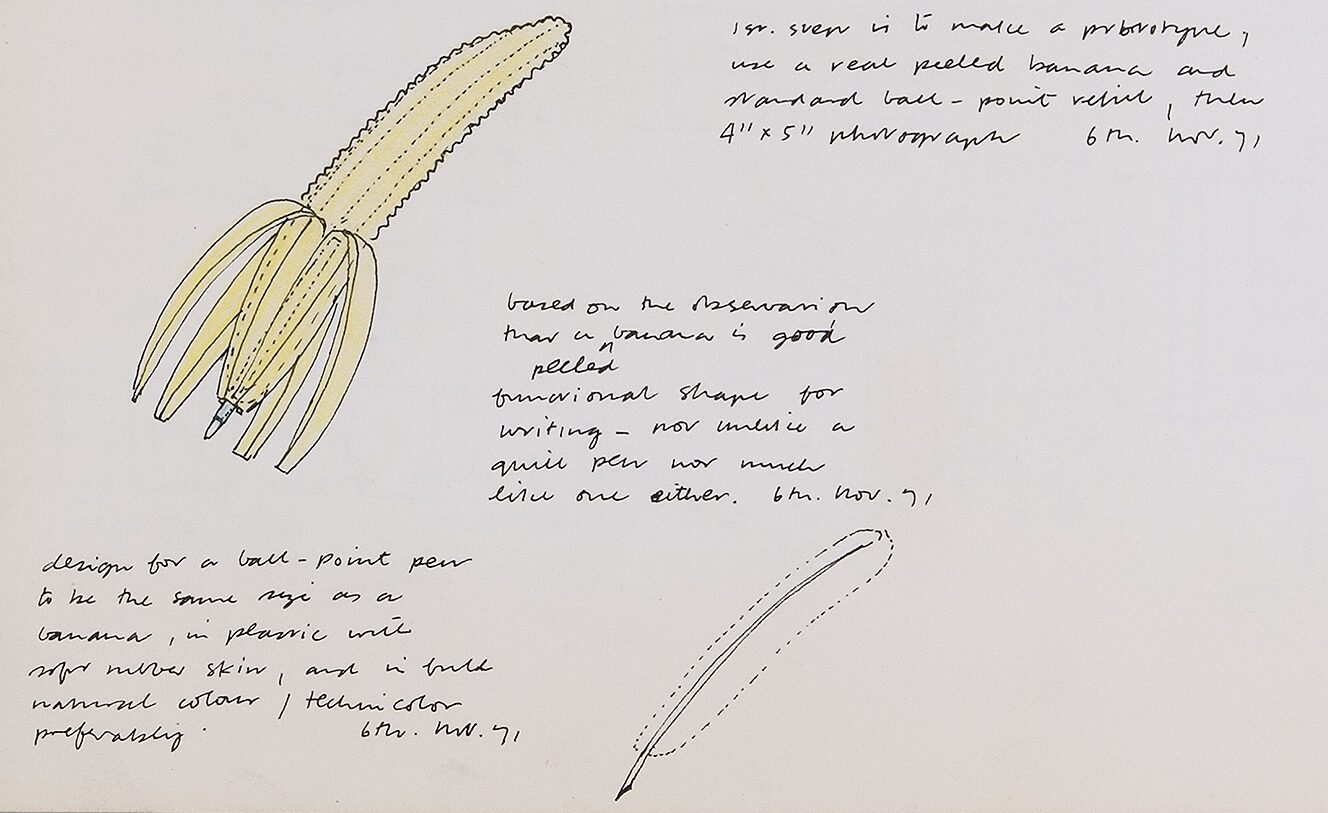 1st. step is to make a prototype,
use a real peeled banana and
standard ball-point refill, then
4" x 5" photograph 6th. Nov. 71
based on the observation
that a banana is good
peeled
functional shape for
writing - not unlike a
quill pen not much
like one either. 6th. Nov. 71
design for a ball-point pen
to be the same size as a
banana, in plastic with
soft rubber skin, and in
natural colour / technicolor
preferably. 6th. Nov. 71